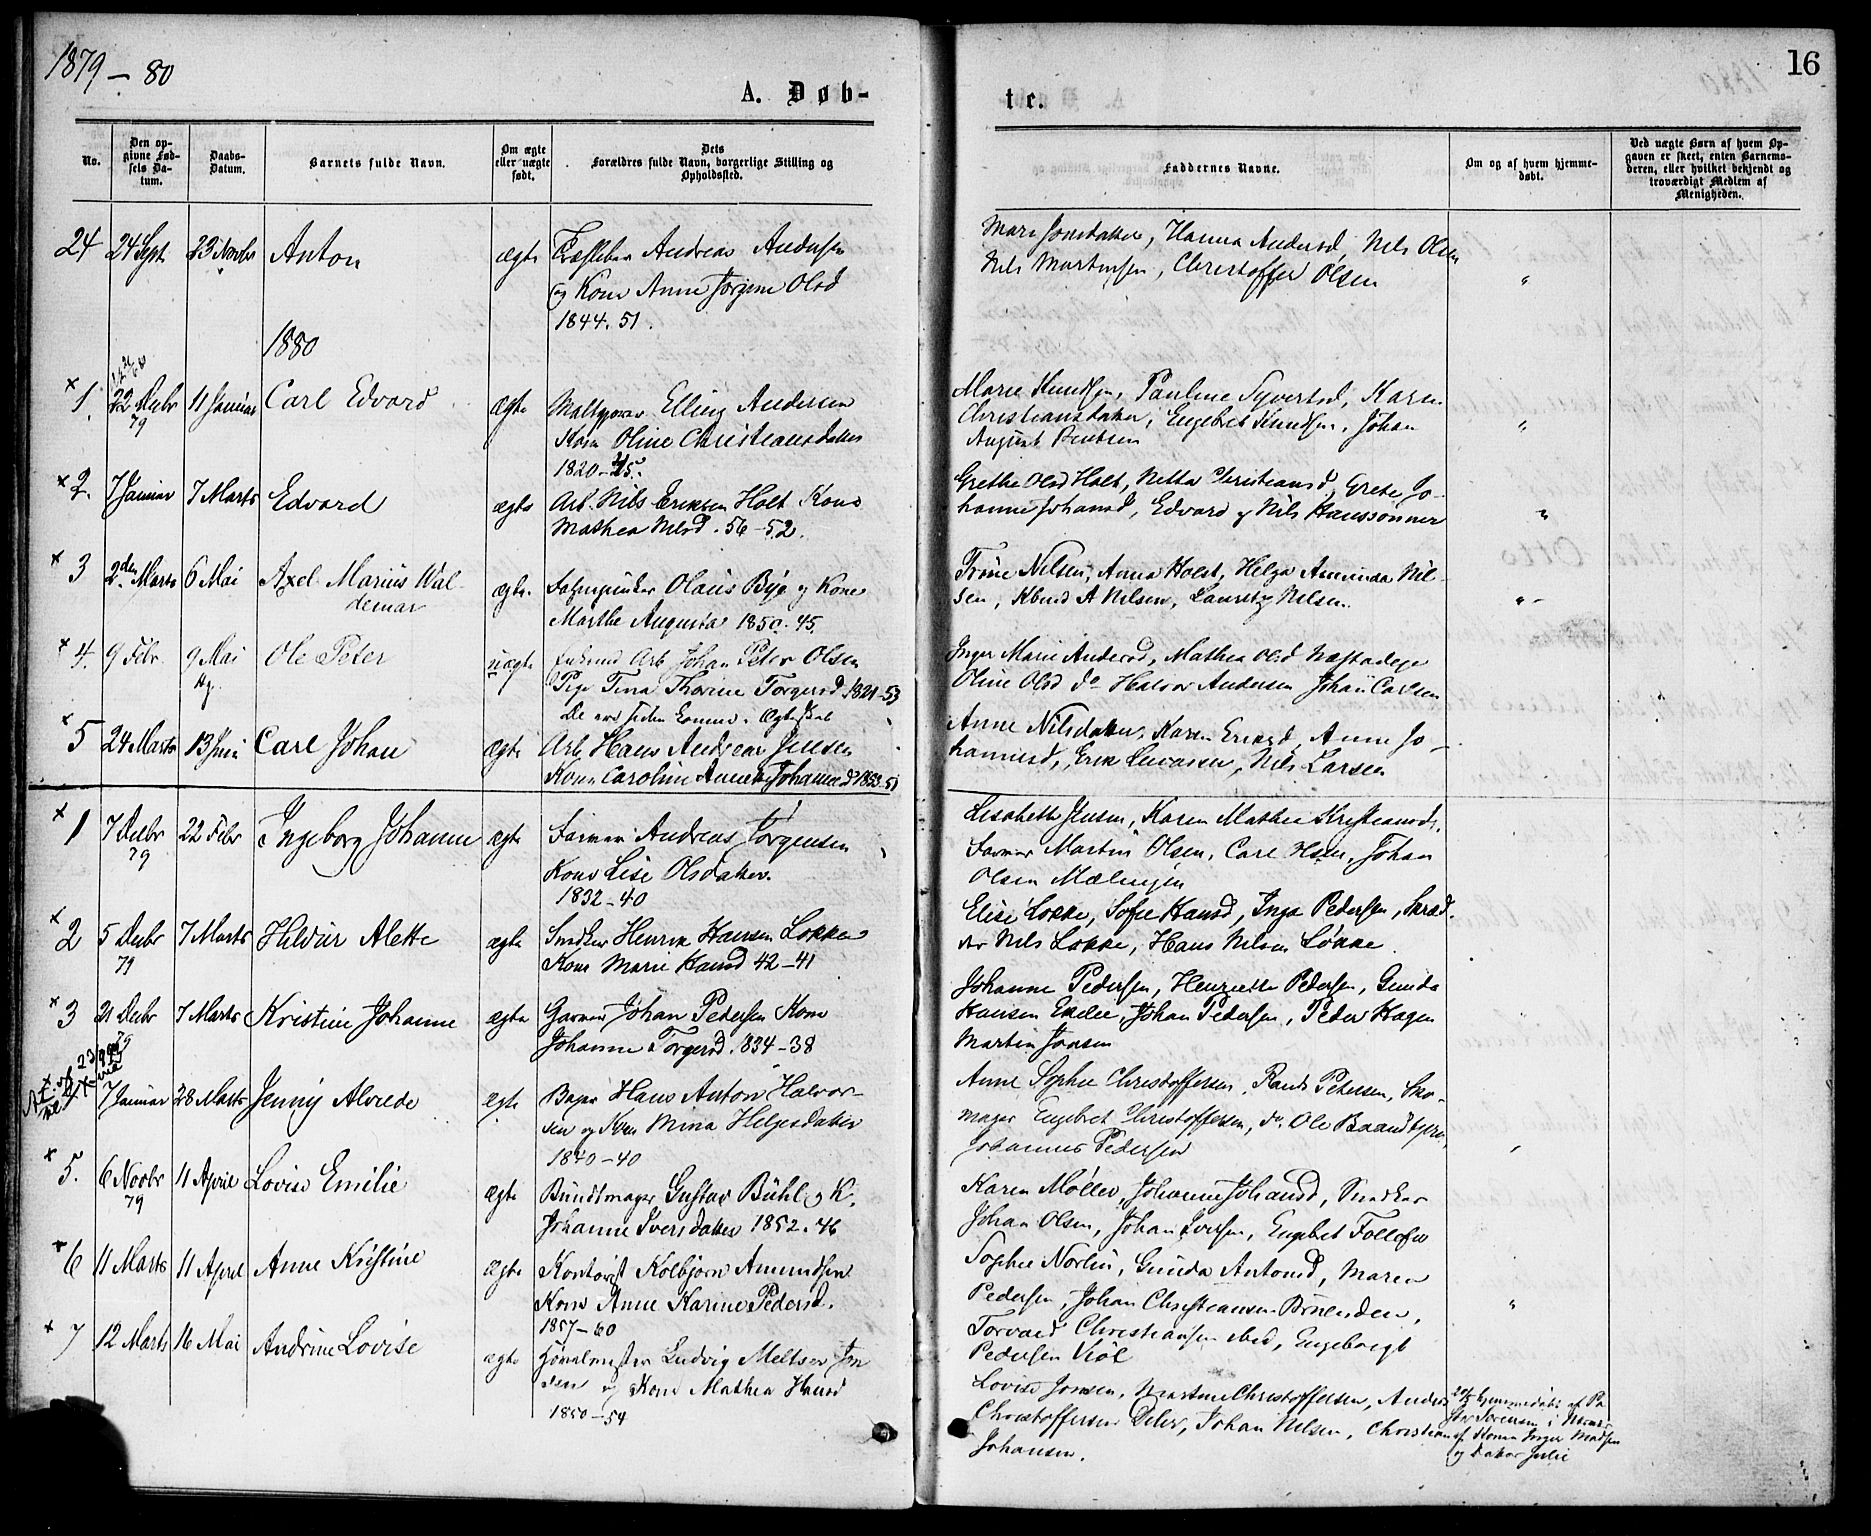 1879 - 80
16
A. Døb-
te.
No.
Den op-
givne Fød-
sels Da-
tum.
Daabs-
Datum.
Barnets fulde Navn.
Om ægte
eller uægte
født.
Dets
Forældres fulde Navn, borgerlige Stilling og
Opholdssted.
Faddernes Navne.
Om og af hvem hjemme-
døbt.
Ved uægte Børn af hvem Op-
gaven er skeet, enten Barnemo-
deren, eller hvilket bekjendt og
troværdigt Medlem af
Menigheden.
24 24 Sept 23 Novbr Anton ægte Andreas Andersen
og Kone Anne Jørgine Olsd
1844. 51.
Mari Jonsdatter, Hanna Andersd, Nils Olsen
Nils Martinsen, Christoffer Olsen "
1880
× 1. 22 Decbr 79 11 Januar Carl Edvard ægte Elling Andersen
Kone Oline Christiansdatter
1820-45.
Marie Knudsen, Pauline Syversd, Karen
Christiansdatter, Engebret Knudsen, Johan
August Bentsen "
× 2. 7 Januar 7 Marts Edvard ægte Arb. Nils Eriksen Holt Kone
Mathea Nilsd. 56-52.
Grethe Olsd Holt, Netta Christiansd, Grete Jo-
hanne Johansd, Edvard og Nils Hanssønner "
× 3 2den Marts 6 Mai Axel Marius Wal-
demar ægte. Olaus Bye og Kone
Marthe Augusta 1850. 45.
Trine Nilsen, Anna Holst, Helga Amunda Nil-
sen, A Nilsen, Lauritz Nilsen. "
× 4. 9 Febr. 9 Mai Ole Peter uægte Arb Johan Peter Olsen
Pige Tina Karine Torgersd 1821-53
De ere siden Ægteskab
Inger Marie Andersd, Mathea Olsd
Oline Olsd do Halvor Andersen Johan Carlsen
× 5 24 Marts 13 Juni Carl Johan ægte Arb. Hans Andreas Jensen
Kone Caroline Annette Johannesd 1853-51
Anne Nilsdatter, Karen Eriksd, Anne Jo-
hannesd, Erik Larsen, Nils Larsen
× 1 7 Decbr 79 22 Febr Ingeborg Johanne ægte Andreas Jørgensen
Kone Lise Olsdatter.
1832-40
Lisabeth Jensen, Karen Mathea Kristiansd,
Martin Olsen, Carl Olsen, Johan
Olsen
× 2 5 Decbr 79 7 Marts Hildur Alette ægte Snedker Henrik Hansen Løkke
Kone Marie Hansd 42-41
Elise Løkke, Sofie Hansd, Inga Pedersen, Skræd-
der Nils Løkke, Hans Nilsen Løkke
× 3 21 Decbr 79 7 Marts Kristine Johanne ægte Garver Johan Pedersen Kone
Johanne Torgersd. 834-38
Johanne Pedersen, Henriette Pedersen, Gunda
Hansen Johan Pedersen, Peder Hagen
Martin Jonsen
4 7 Januar 28 Marts Jenny Alvede ægte Bager Hans Anton Halvor-
sen og Kone Mina Helgesdatter
1840-40
Anne Sophie Christoffersen, Randi Petersen, Sko-
mager Engebret Christoffersen, do Ole
Johannes Pedersen
× 5. 6 Novbr 79 11 April Lovise Emilie ægte Bundtmager Gustav Bühl og K.
Johanne Iversdatter 1852. 46
Karen Møller, Johanne Johansd, Snedker
Johan Olsen, Johan Iversen, Engebret Folloseie
× 6 11 Marts 11 April Anne Kristine ægte Kontorist Kolbjørn Amundsen
Kone Anne Karine Pedersd.
1857-60
Sophie Norlin, Gunda Antonsd, Maren
Pedersen, Johan Christiansen
Torvald Christiansen ibid, Engebrigt
Pedersen "
× 7 12 Marts 16 Mai Andrine Lovise ægte Ludvig Jon
sen og Kone Mathea Hansd
1850-54
Lovise Jonsen, Martine Christoffersen, Anders
Christoffersen Johan Nilsen, Christian
Johansen.
hjemmedøbt af Pa
stor Sørensen i
af Konen Inger Madsen
og Datter Julie